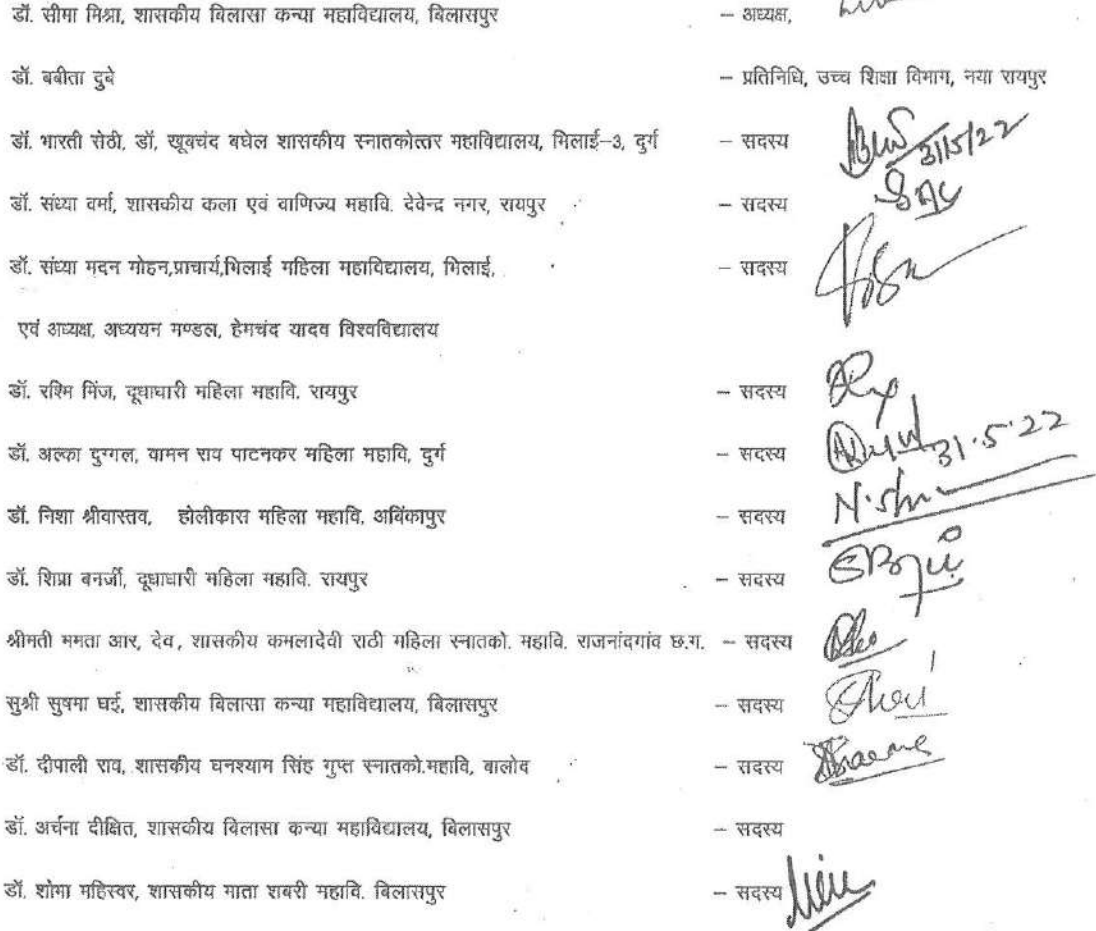 डॉ. सीमा मिश्रा, शासकीय बिलासा कन्या महाविद्यालय, बिलासपुर – अध्यक्ष,
डॉ. बबीता दुबे – प्रतिनिधि, उच्च शिक्षा विभाग, नया रायपुर
डॉ. भारती सेठी, डॉ. खूबचंद बघेल शासकीय स्नातकोत्तर महाविद्यालय, भिलाई–3, दुर्ग – सदस्य 31/5/22
डॉ. संध्या वर्मा, शासकीय कला एवं वाणिज्य महावि. देवेन्द्र नगर, रायपुर – सदस्य
डॉ. संध्या मदन मोहन,प्राचार्य,भिलाई महिला महाविद्यालय, भिलाई, – सदस्य
एवं अध्यक्ष, अध्ययन मण्डल, हेमचंद यादव विश्वविद्यालय
डॉ. रश्मि मिंज, दूधाधारी महिला महावि. रायपुर – सदस्य
डॉ. अल्का दुग्गल, वामन राव पाटनकर महिला महावि, दुर्ग – सदस्य 31.5.22
डॉ. निशा श्रीवास्तव, होलीकास महिला महावि, अबिंकापुर – सदस्य
डॉ. शिप्रा बनर्जी, दूधाधारी महिला महावि. रायपुर – सदस्य
श्रीमती ममता आर, देव, शासकीय कमलादेवी राठी महिला स्नातको. महावि. राजनांदगांव छ.ग. – सदस्य
सुश्री सुषमा घई, शासकीय बिलासा कन्या महाविद्यालय, बिलासपुर – सदस्य
डॉ. दीपाली राव, शासकीय घनश्याम सिंह गुप्त स्नातको.महावि, बालोद – सदस्य
डॉ. अर्चना दीक्षित, शासकीय बिलासा कन्या महाविद्यालय, बिलासपुर – सदस्य
डॉ. शोभा महिस्वर, शासकीय माता शबरी महावि. बिलासपुर – सदस्य